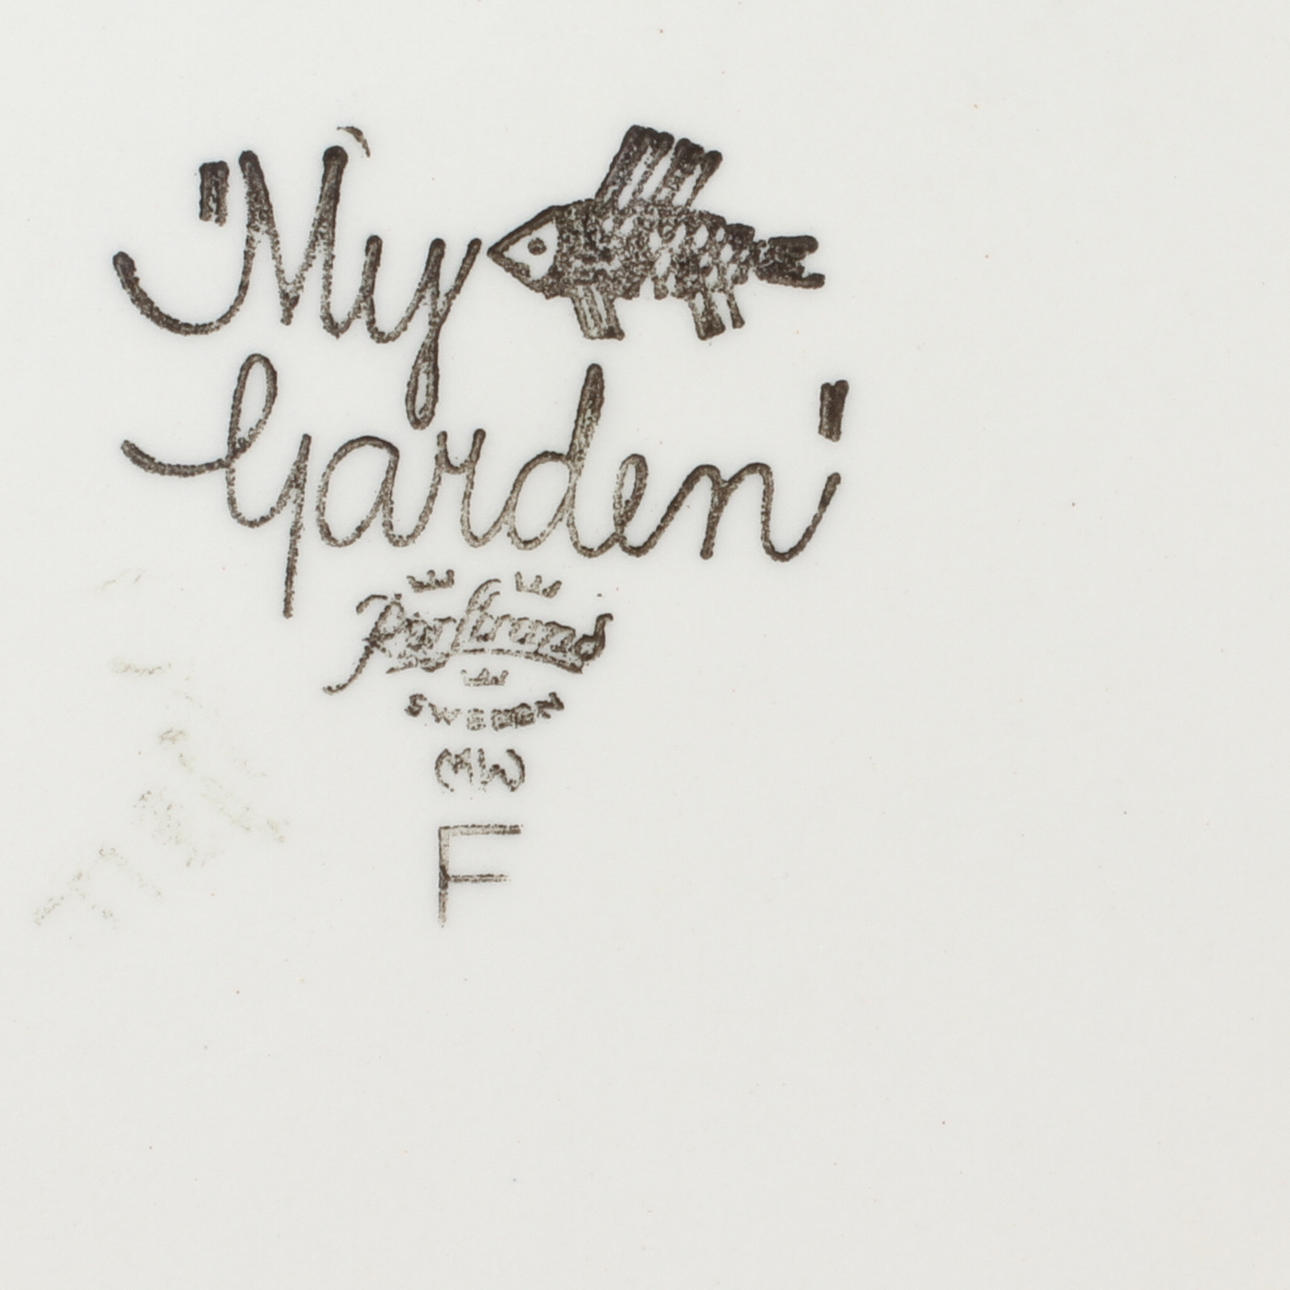 "My
Garden"
Rörstrand
SWEDEN
MW
F